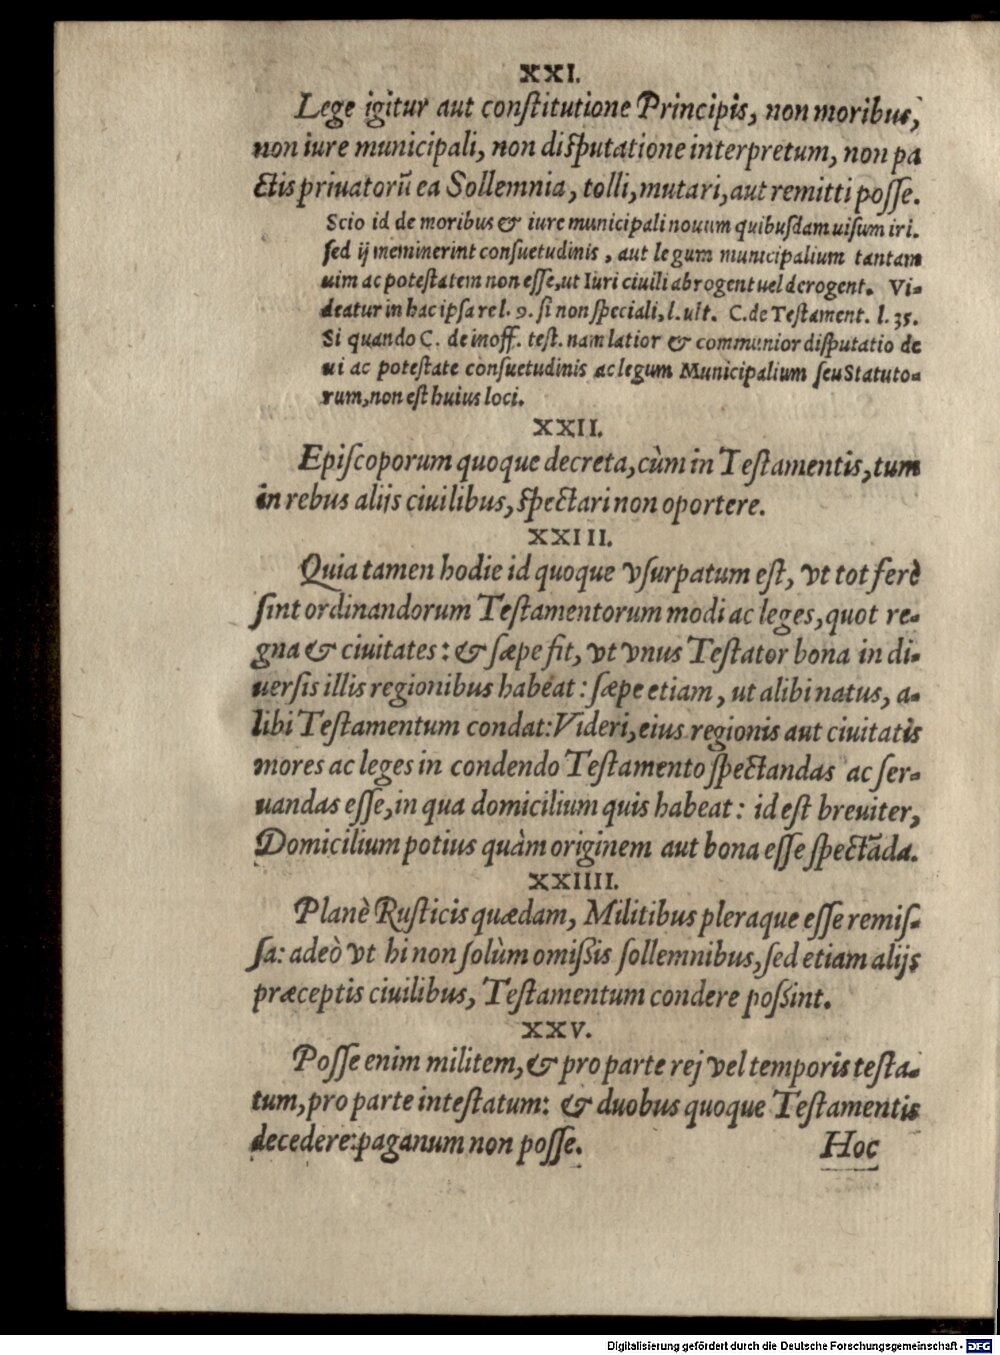 XXI.
Lege igitur aut conſtitutione Principis, non moribus,
non iure municipali, non diſputatione interpretum, non pa
ctis priuatorũ ea Sollemnia, tolli, mutari, aut remitti poſſe.
Scio id de moribus & iure municipali nouum quibuſdam uiſum iri.
ſed ij meminerint conſuetudinis, aut legum municipalium tantam
uim ac poteſtatem non eſſe, ut Iuri ciuili abrogent uel derogent. Vi-
deatur in hac ipſa re l. 9. ſi non ſpeciali, l. ult. C. de Teſtament. l. 35.
Si quando C. de inoff. teſt. nam latior & communior diſputatio de
ui ac poteſtate conſuetudinis ac legum Municipalium ſeu Statuto-
rum, non eſt huius loci.
XXII.
Epiſcoporum quoque decreta, cùm in Teſtamentis, tum
in rebus alijs ciuilibus, ſpectari non oportere.
XXIII.
Quia tamen hodie id quoque vſurpatum eſt, vt tot ferè
ſint ordinandorum Teſtamentorum modi ac leges, quot re-
gna & ciuitates: & ſæpe fit, vt vnus Teſtator bona in di-
uerſis illis regionibus habeat: ſæpe etiam, ut alibi natus, a-
libi Teſtamentum condat: Videri, eius regionis aut ciuitatis
mores ac leges in condendo Teſtamento ſpectandas ac ſer-
uandas eſſe, in qua domicilium quis habeat: id eſt breuiter,
Domicilium potius quàm originem aut bona eſſe ſpectãda.
XXIIII.
Planè Ruſticis quædam, Militibus pleraque eſſe remiſ-
ſa: adeò vt hi non ſolùm omißis ſollemnibus, ſed etiam alijs
præceptis ciuilibus, Teſtamentum condere poßint.
XXV.
Poſſe enim militem, & pro parte rej vel temporis teſta-
tum, pro parte inteſtatum: & duobus quoque Teſtamentis
decedere: paganum non poſſe.
Hoc
Digitalisierung gefördert durch die Deutsche Forschungsgemeinschaft - DFG